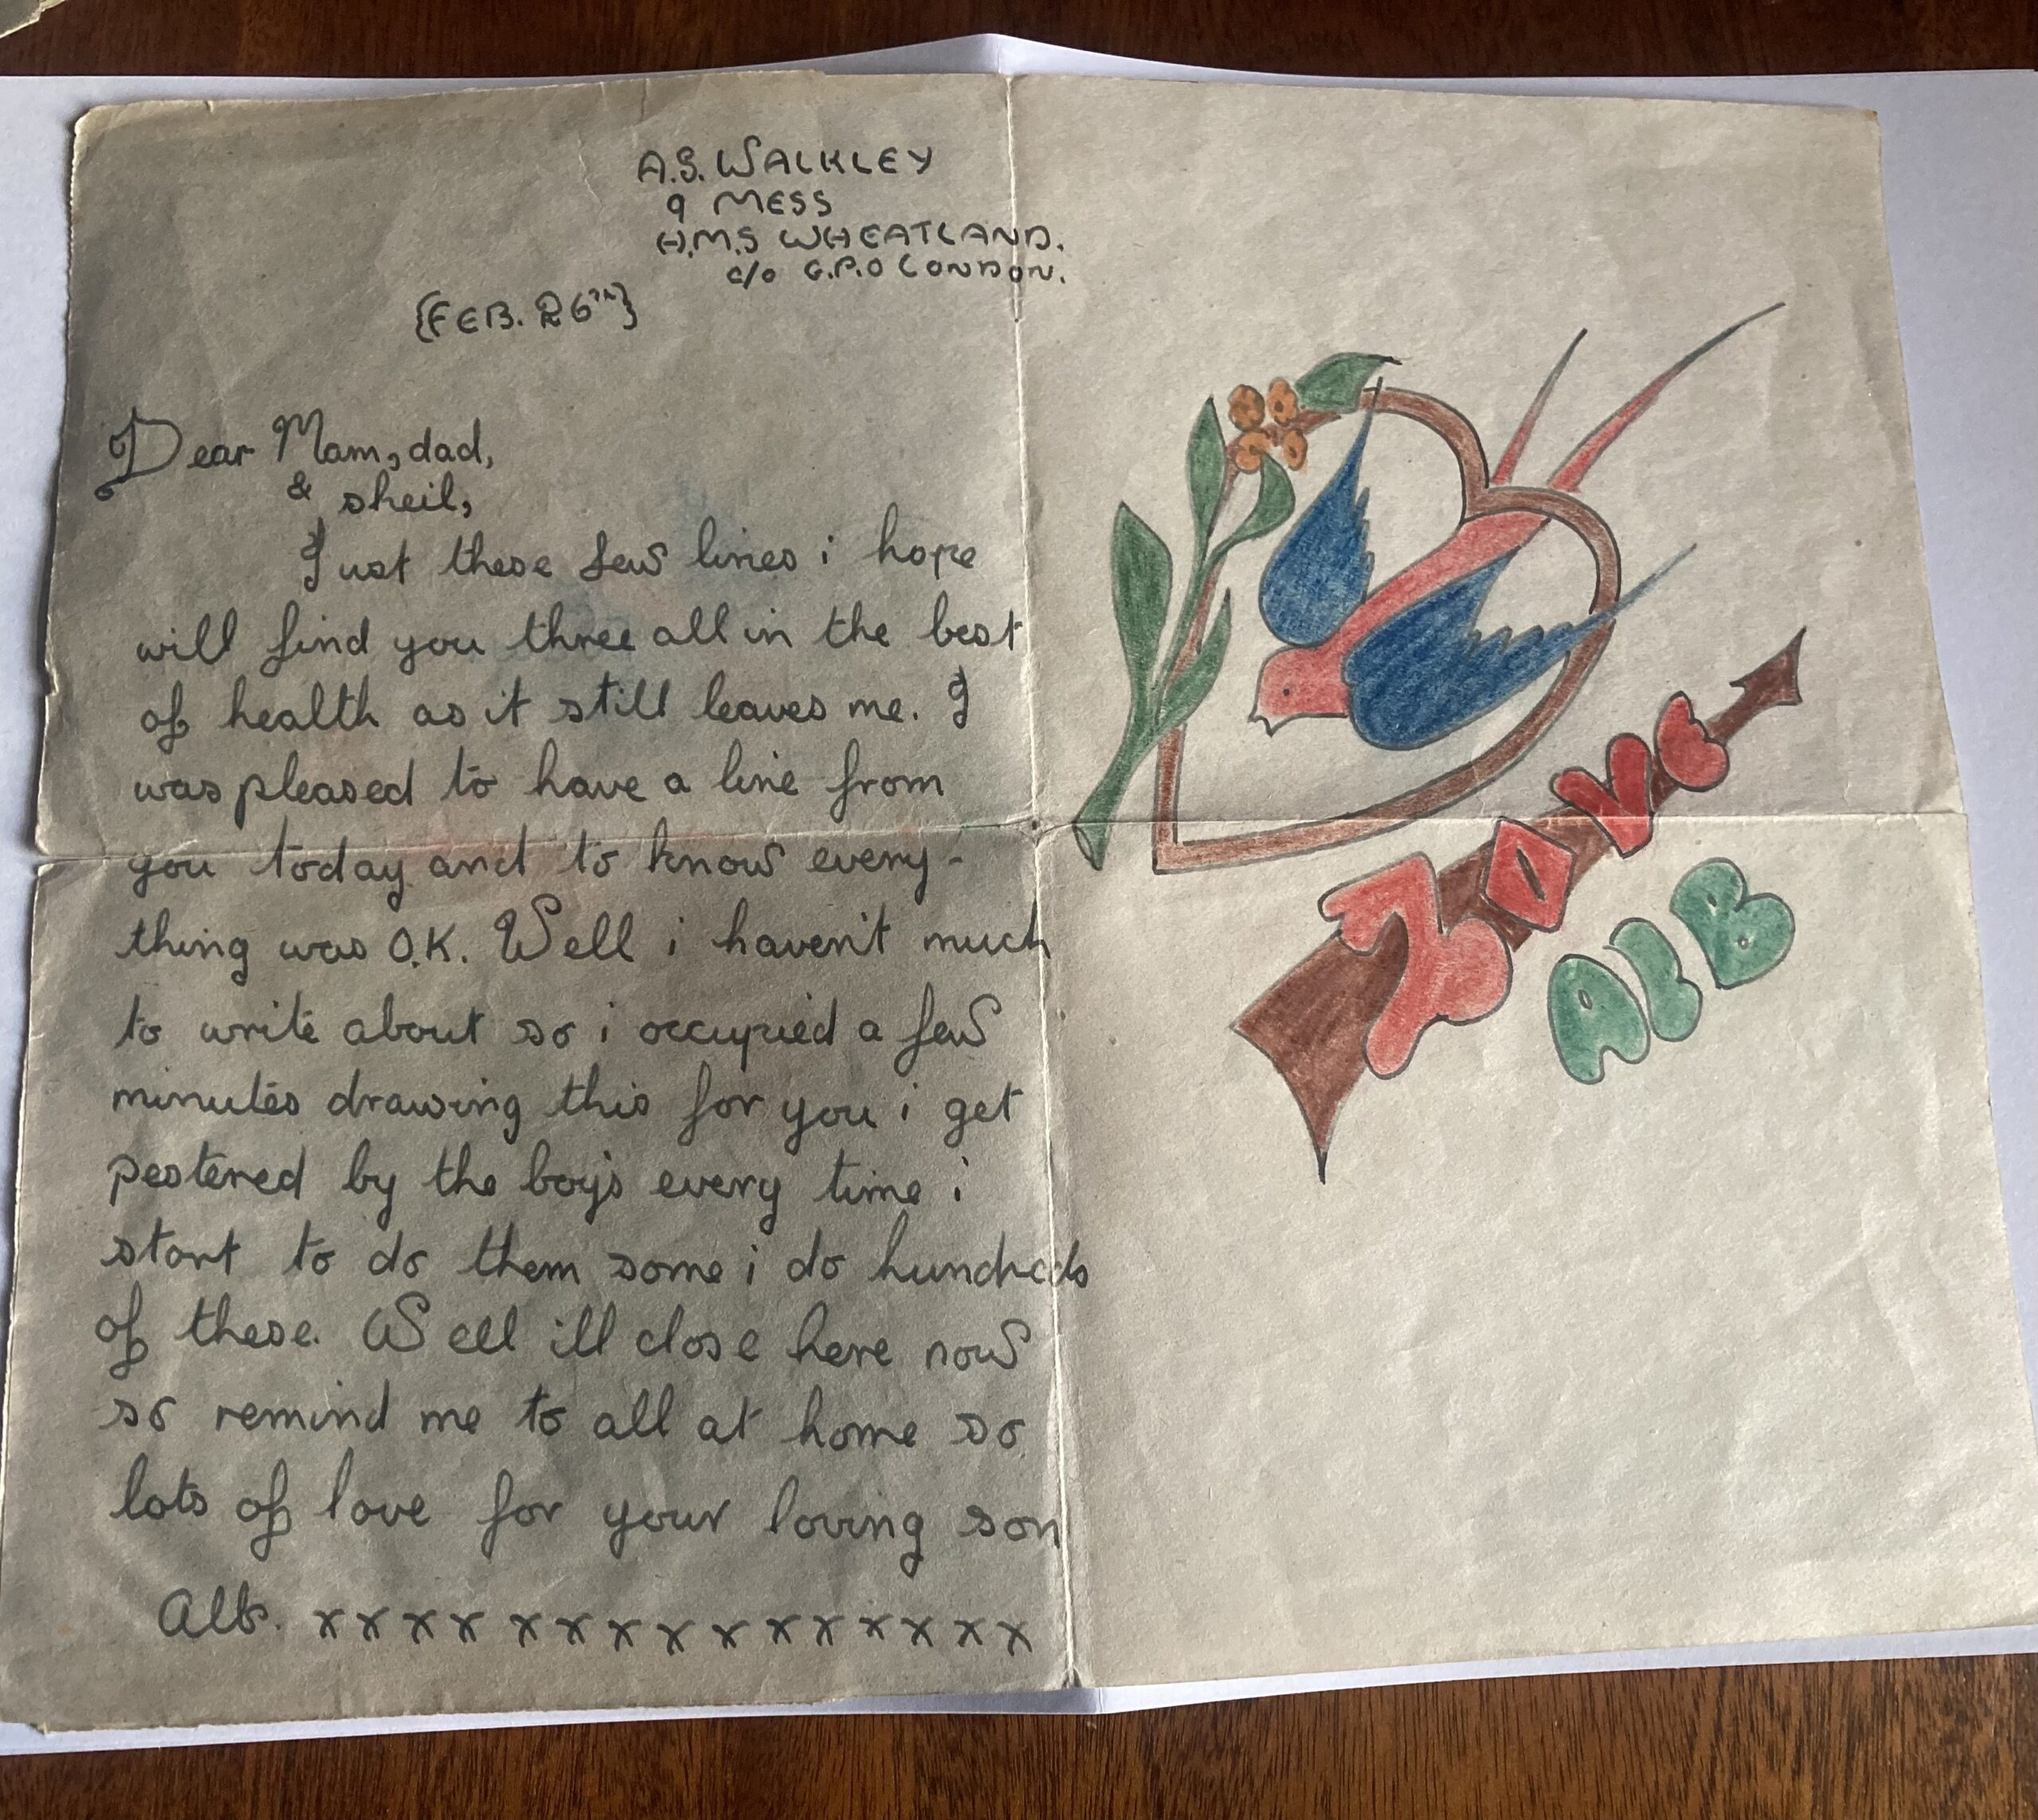 A.S. WALKLEY
9 MESS
H.M.S WHEATLAND.
c/o G.P.O LONDON.
{FEB. 26TH}
Dear Mam, dad,
& sheil,
Just these few lines i hope
will find you three all in the best
of health as it still leaves me. I
was pleased to have a line from
you today and to know every-
thing was O.K. Well i haven't much
to write about so i occupied a few
minutes drawing this for you i get
pestered by the boys every time i
start to do them some i do hundreds
of these. Well ill close here now
so remind me to all at home so
lots of love for your loving son
Alb. x x x x x x x x x x x x x x x
LOVE
ALB